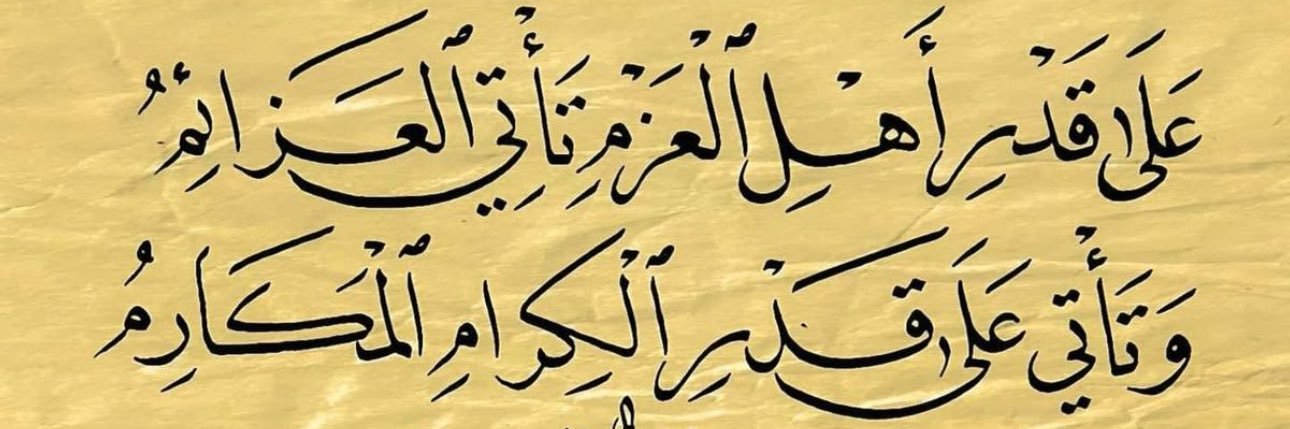 عَلَىٰ قَدْرِ أَهْلِ ٱلْعَزْمِ تَأْتِي ٱلعَزَائِمُ
وَتَأْتِي عَلَىٰ قَدْرِ ٱلْكِرَامِ ٱلْمَكَارِمُ